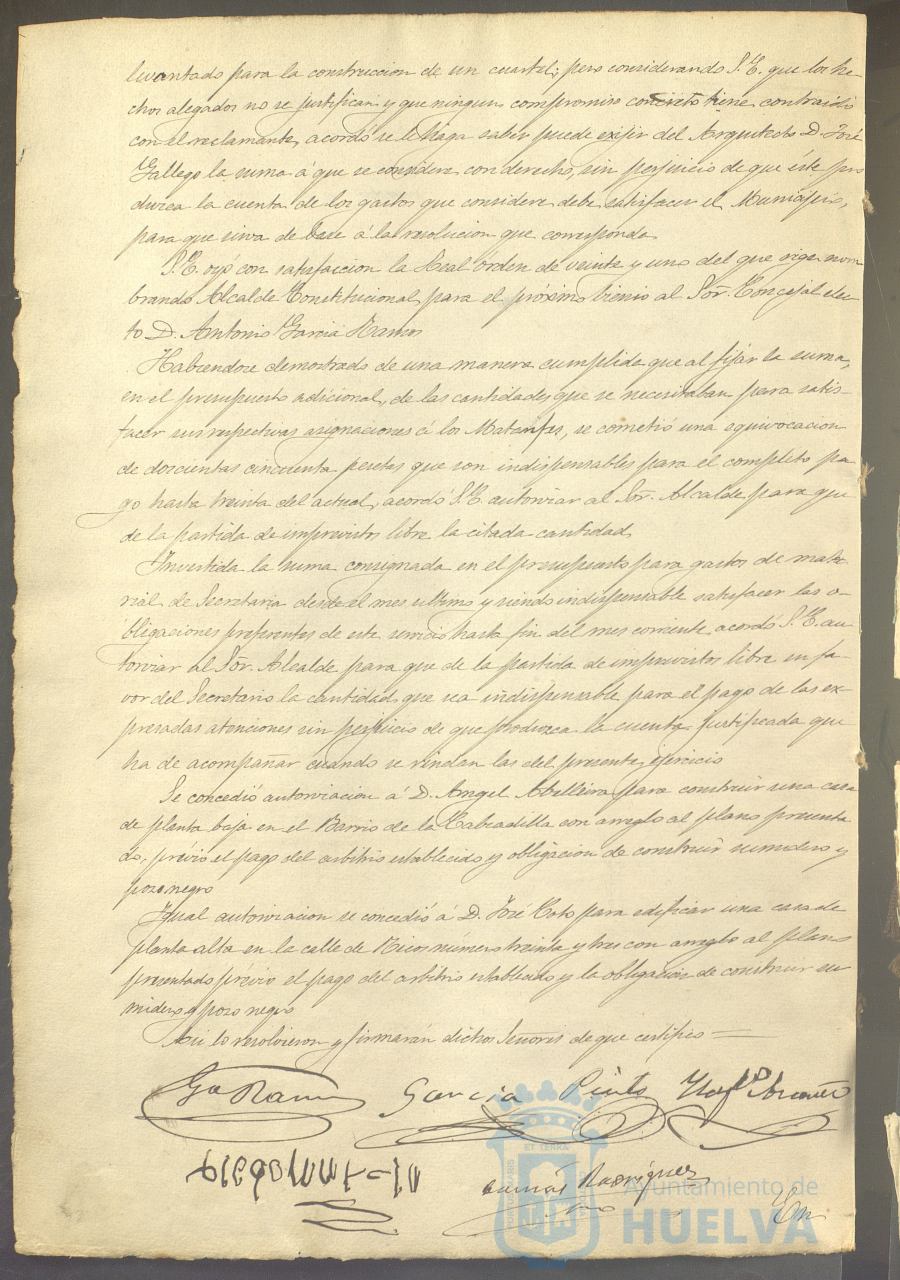 levantado para la construccion de un cuartel; pero considerando S.E. que los he-
chos alegados no se justifican y que ningun compromiso concreto tiene contraido
con el reclamante, acordó se le haga saber puede exijir del Arquitecto D. José
Gallego la suma á que se considere con derecho, sin perjuicio de que éste pro
duzca la cuenta de los gastos que considere debe satisfacer el Municipio,
para que sirva de base á la resolucion que corresponda.
S.E. oyó con satisfaccion la Real orden de veinte y uno del que rige nom
brando Alcalde Constitucional para el próximo bienio al Sor. Concejal elec-
to D. Antonio Garcia Ramos
Habiendose demostrado de una manera cumplida que al fijar la suma,
en el presupuesto adicional, de las cantidades que se necesitaban para satis-
facer sus respectivas asignaciones á los Matarifes, se cometió una equivocacion
de doscientas cincuenta pesetas que son indispensables para el completo pa-
go hasta treinta del actual, acordó S.E. autorizar al Sor. Alcalde para que
de la partida de imprevistos libre la citada cantidad.
Invertida la suma consignada en el presupuesto para gastos de mate-
rial de Secretaria desde el mes ultimo y siendo indispensable satisfacer las o-
bligaciones preferentes de este servicio hasta fin del mes corriente, acordó S.E. au-
torizar al Sor. Alcalde para que de la partida de imprevistos libre en fa-
vor del Secretario la cantidad que sea indispensable para el pago de las ex-
presadas atenciones sin perjuicio de que produzca la cuenta justificada que
ha de acompañar cuando se rindan las del presente ejercicio
Se concedió autorizacion á D. Angel Abelleira para construir una casa
de planta baja en el Barrio de la Calzadilla con arreglo al plano presenta
do, previo el pago del arbitrio establecido y obligacion de construir sumidero y
pozo negro
Igual autorizacion se concedió á D. José Coto para edificar una casa de
planta alta en la calle de Ricos número treinta y tres con arreglo al plano
presentado previo el pago del arbitrio establecido y la obligacion de construir su
midero y pozo negro
Asi lo resolvieron y firmarán dichos Señores de que certifico =
Ga Ramos Garcia Pinto
Tomás Rodriguez
Ayuntamiento de
HUELVA